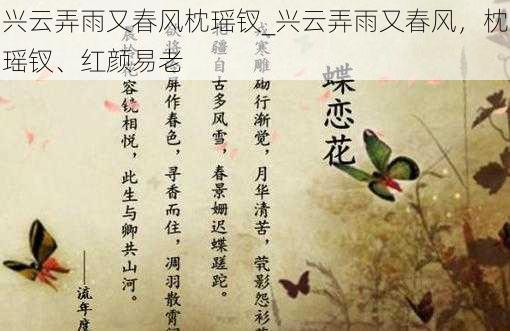 兴云弄雨又春风枕瑶钗_兴云弄雨又春风，枕
瑶钗、红颜易老
蝶恋花
戍寒雕砌行渐觉，月华清苦，茕影怨衫
北疆自古多风雪，春景姗迟蝶蹉跎。
欲将
屏作春色，寻香而住，凋羽散霄
晨
容镜相悦，此生与卿共山河。
——流年度